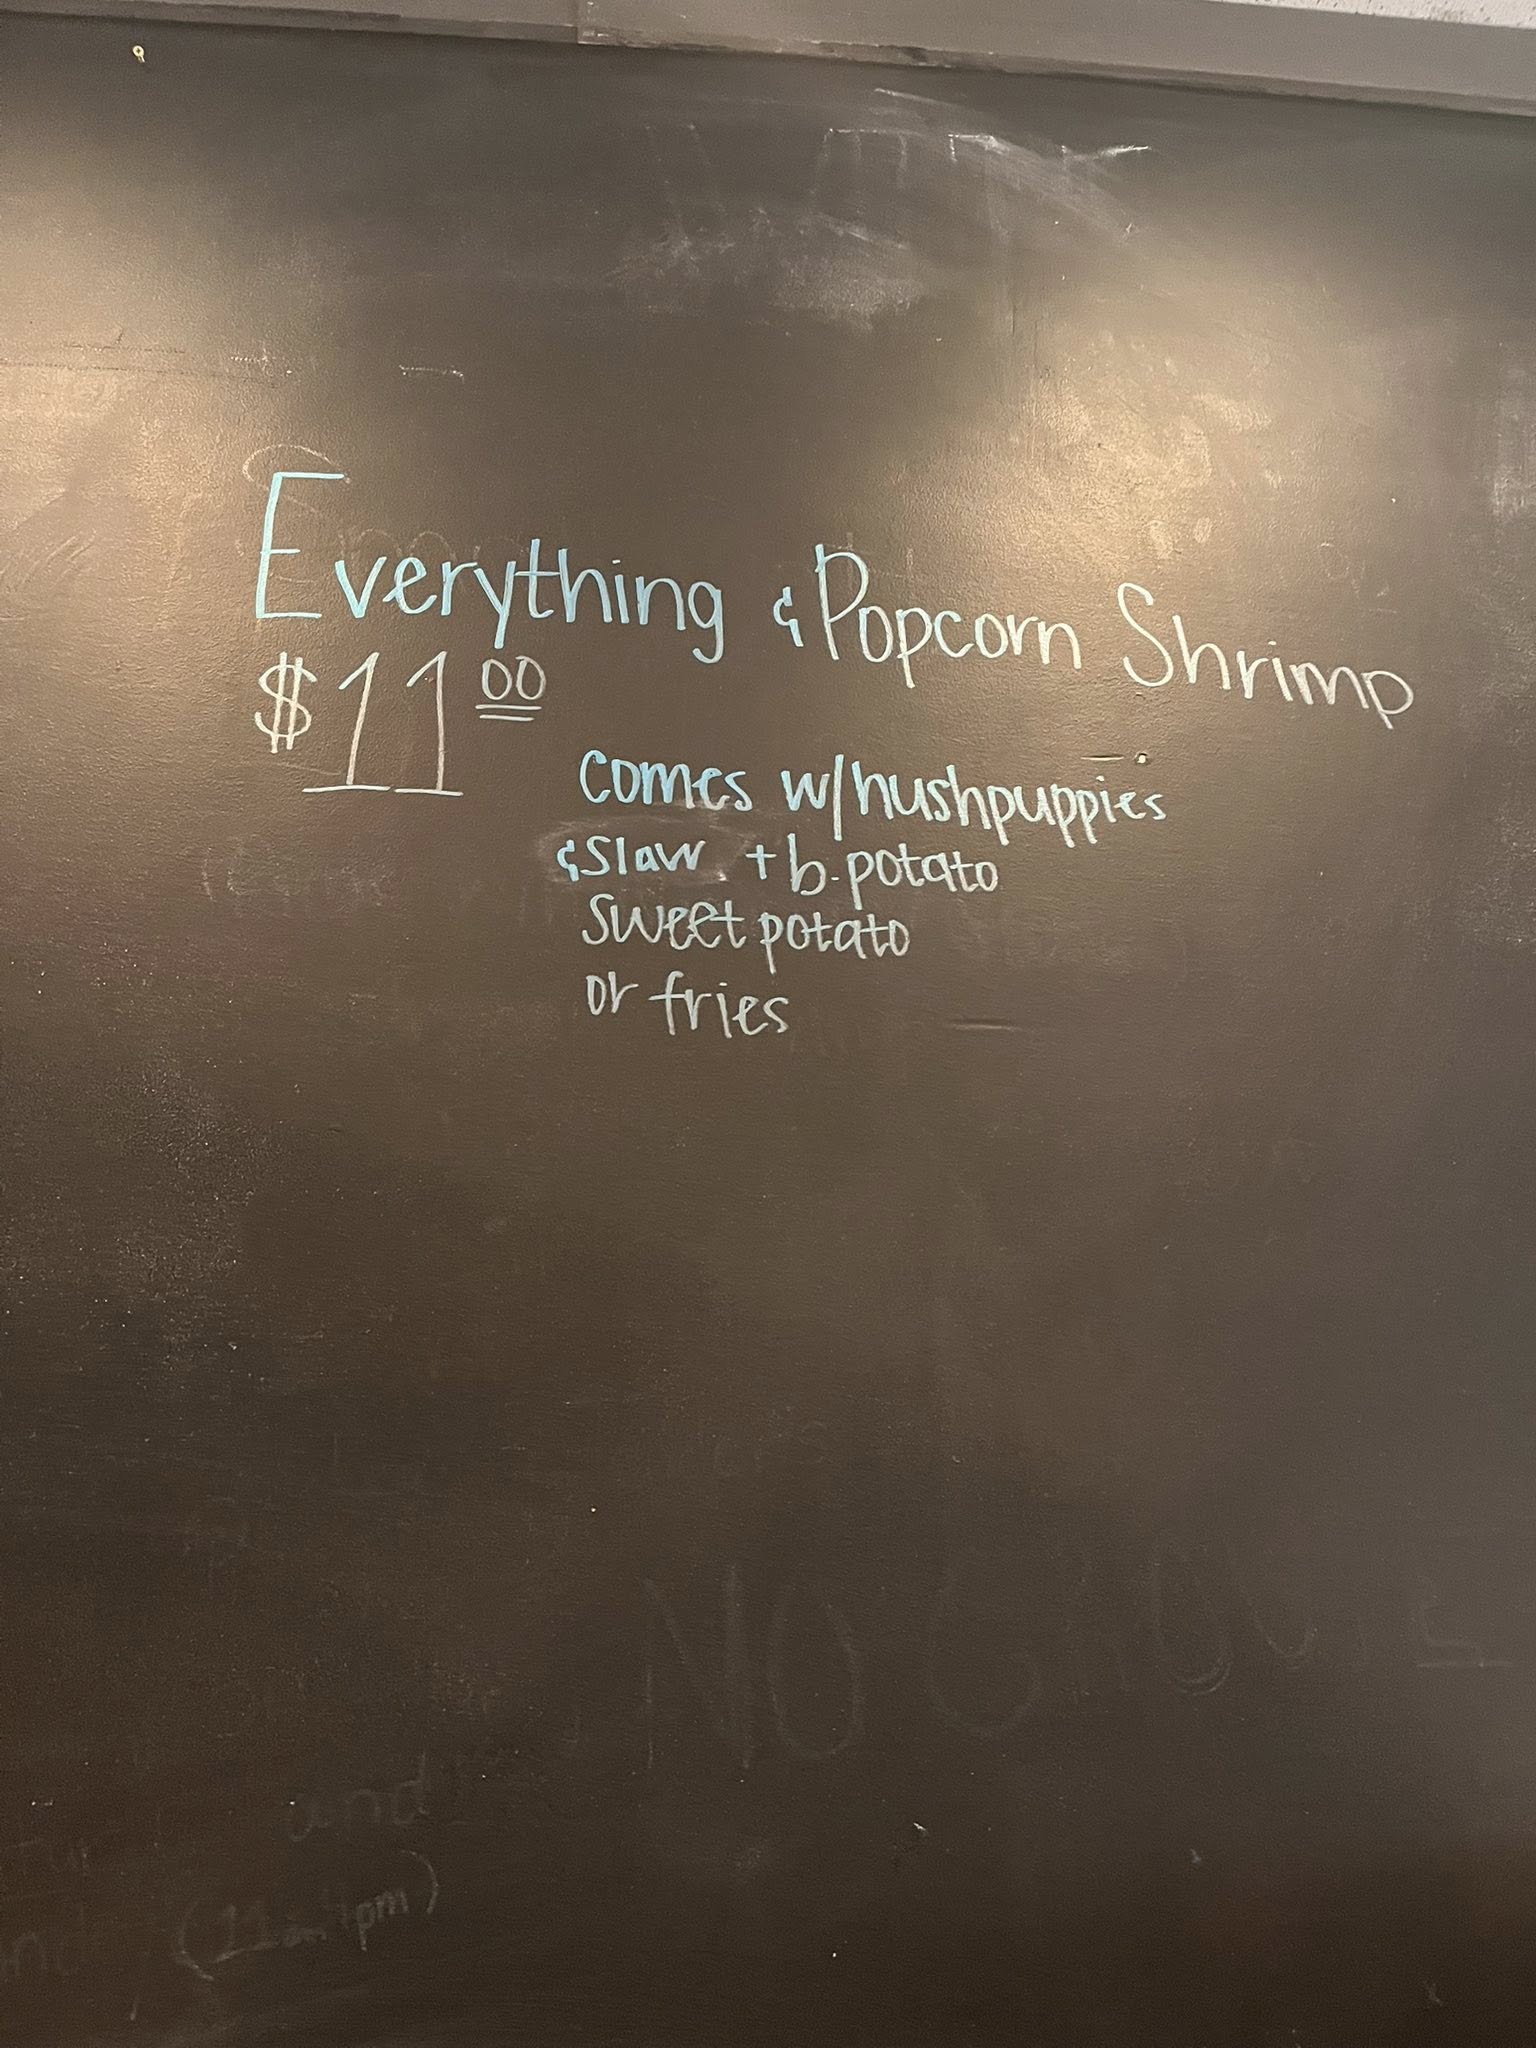 Everything & Popcorn Shrimp
$11.00
comes w/hushpuppies
& slaw + b. potato
sweet potato
or fries
NO
and
pm)